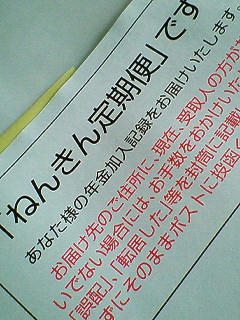 「ねんきん定期便」です
あなた様の年金加入記録をお届けいたします。
お届け先のご住所に、現在、受取人の方が
いでない場合には、お手数をおかけいた
「誤配」、「転居した」等を封筒に記載
ずにそのままポストに投函